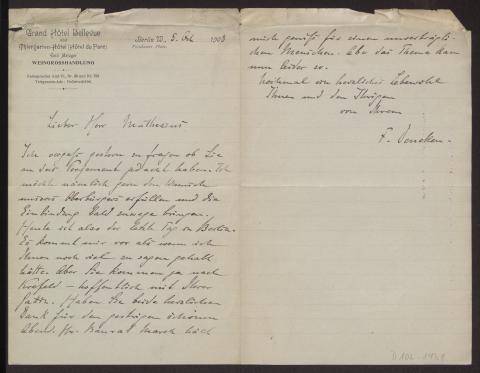 Grand Hôtel Bellevue
und
Thiergarten-Hôtel (Hôtel du Parc)
Emil Metzger
WEINGROSSHANDLUNG
Telegramm-Adr.:
Berlin W., 5. Okt. 1903
Potsdamer Platz.
Lieber Herr Muthesius
Ich vergaß gestern zu fragen ob Sie
an das Pergament gedacht haben. Ich
möchte nämlich gern den Wunsch
unseres Oberbürgers erfüllen und die
Einbindung bald zuwege bringen.
Heute ist also der letzte Tag in Berlin.
Es kommt mir vor als wenn ich
Ihnen noch viel zu sagen gehabt
hätte. Aber Sie kommen ja nach
Krefeld – hoffentlich mit Ihrer
Gattin. Haben Sie beide herzlichen
Dank für den gestrigen schönen
Abend. Hr. Baurat March hält
mich gewiß für einen unverträgli-
chen Menschen. Aber das Thema kam
nun leider so.
Nochmal ein herzliches Lebewohl
Ihnen und den Ihrigen
von Ihrem
F. Deneken.
D 102-1421